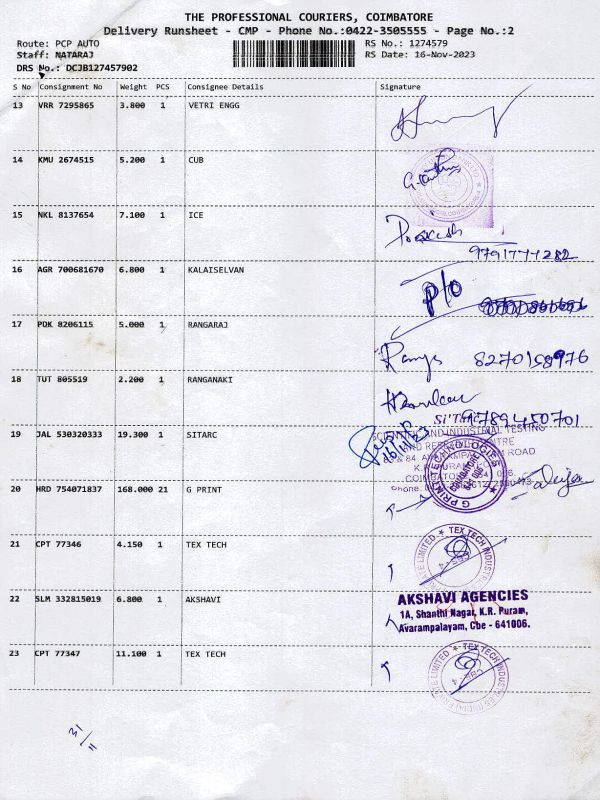 THE PROFESSIONAL COURIERS, COIMBATORE
Delivery Runsheet - CMP - Phone No.:0422-3505555 - Page No.:2
Route: PCP AUTO RS No.: 1274579
Staff: NATARAJ RS Date: 16-Nov-2023
DRS No.: DCJB127457902
S No Consignment No Weight PCS Consignee Details Signature
13 VRR 7295865 3.800 1 VETRI ENGG
14 KMU 2674515 5.200 1 CUB
15 NKL 8137654 7.100 1 ICE
9791777282
16 AGR 700681670 6.800 1 KALAISELVAN
P/o
17 PDK 8206115 5.000 1 RANGARAJ
8270158976
18 TUT 805519 2.200 1 RANGANAKI
9789450701
19 JAL 530320333 19.300 1 SITARC
16/11/23
AND INDUSTRIAL TESTING
ROAD
20 HRD 754071837 168.000 21 G PRINT
G PRINT TECHNOLOGIES
COIMBATORE
21 CPT 77346 4.150 1 TEX TECH
TEX TECH INDUSTRIES
LIMITED
CBE - 4
22 SLM 332815019 6.800 1 AKSHAVI
AKSHAVI AGENCIES
1A, Shanthi Nagar, K.R. Puram,
Avarampalayam, Cbe - 641006.
23 CPT 77347 11.100 1 TEX TECH
TEX TECH INDUSTRIES (INDIA) PRIVATE LIMITED
CBE - 4
31/11